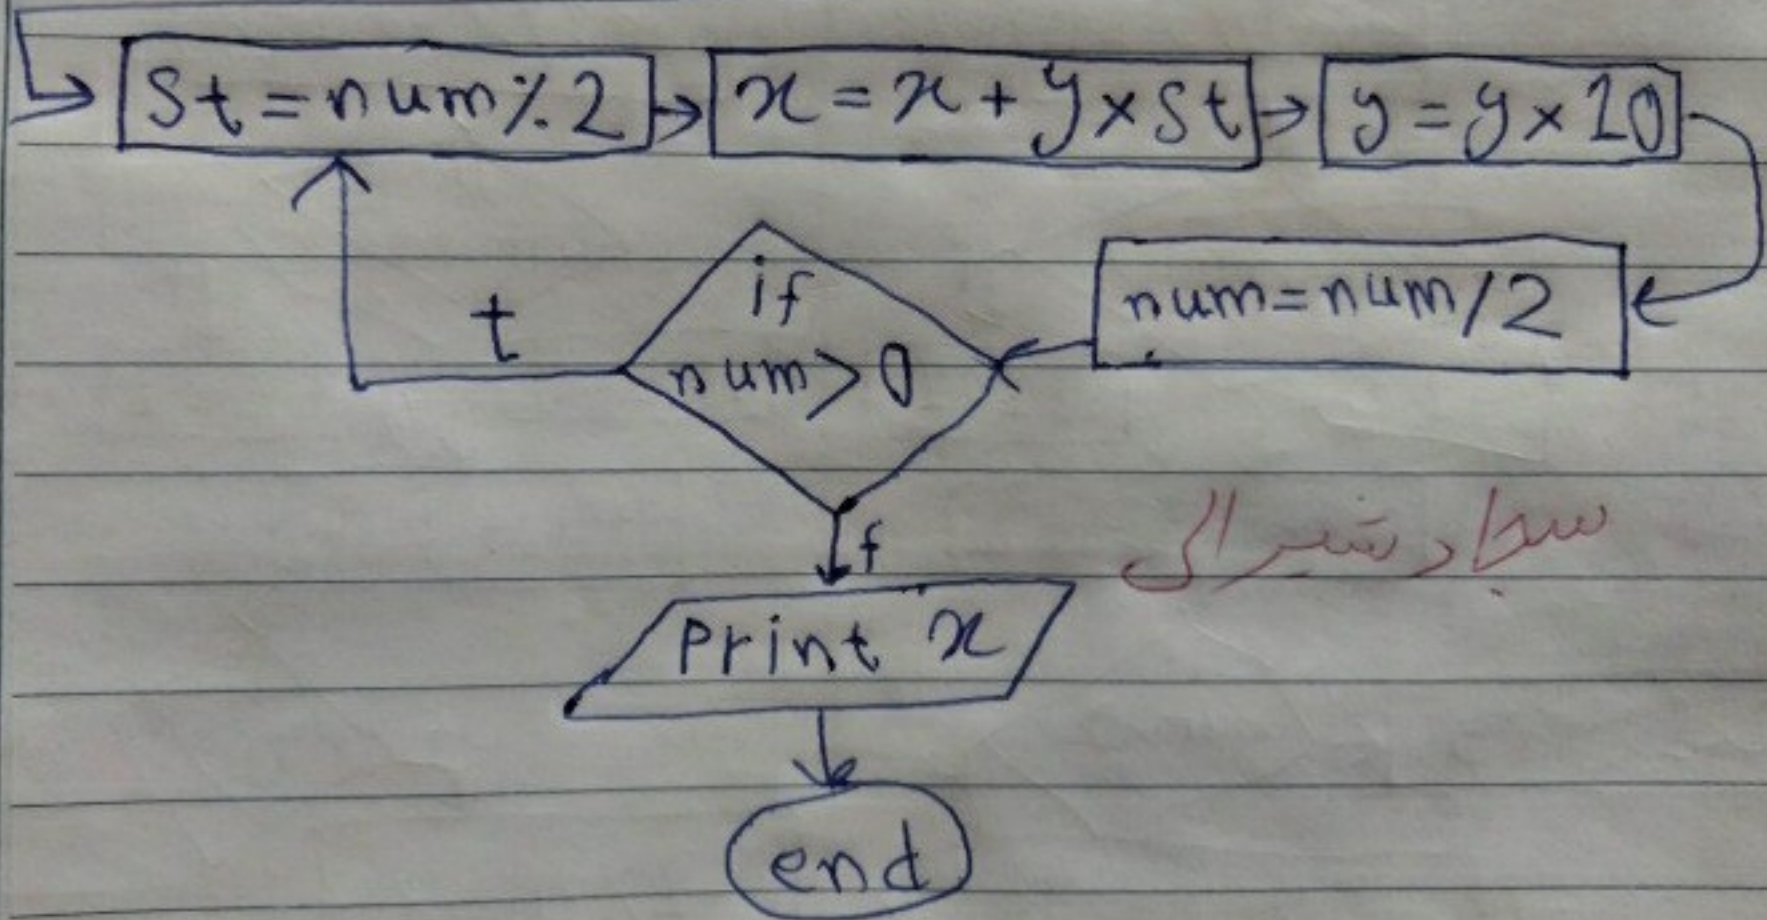 St = num % 2
x = x + y × St
y = y × 10
num = num / 2
if
num > 0
t
f
سجاد شیرالی
Print x
end